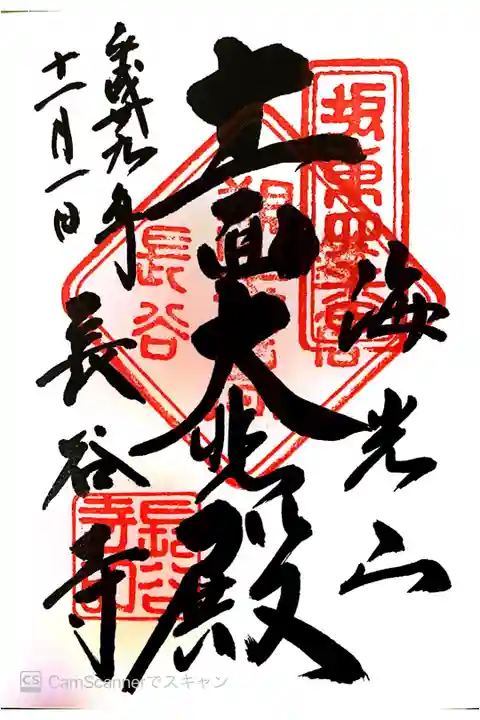 海光山
十一面大悲殿
長谷寺
平成廿九年
十一月一日
坂東四番
長谷
長谷寺印
CS CamScannerでスキャン